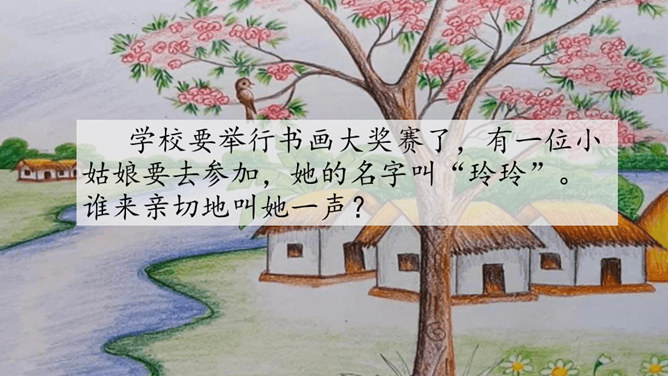 学校要举行书画大奖赛了，有一位小
姑娘要去参加，她的名字叫“玲玲”。
谁来亲切地叫她一声？